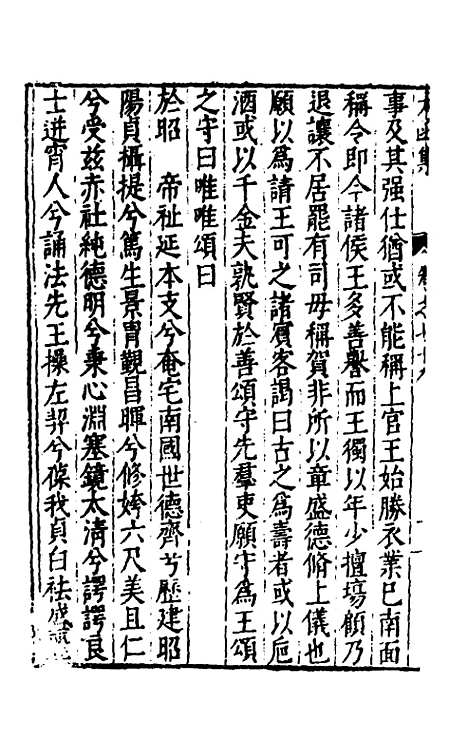 事及其强仕猶或不能稱上官王始勝衣業已南面
稱令即今諸侯王多善譽而王獨以年少擅塲顧乃
退讓不居罷有司毋稱賀非所以章盛德脩上儀也
願以爲請王可之諸賓客謁曰古之爲壽者或以巵
酒或以千金夫孰賢於善頌守先羣吏願守爲王頌
之守曰唯唯頌曰
於昭　帝祉延本支兮奄宅南國世德齊兮歷建昭
陽貞攝提兮篤生景胄觀昌暉兮修姱六尺美且仁
兮受兹赤社純德明兮秉心淵塞鏡太清兮諤諤良
士逬宵人兮誦法先王操左契兮葆我貞白袪